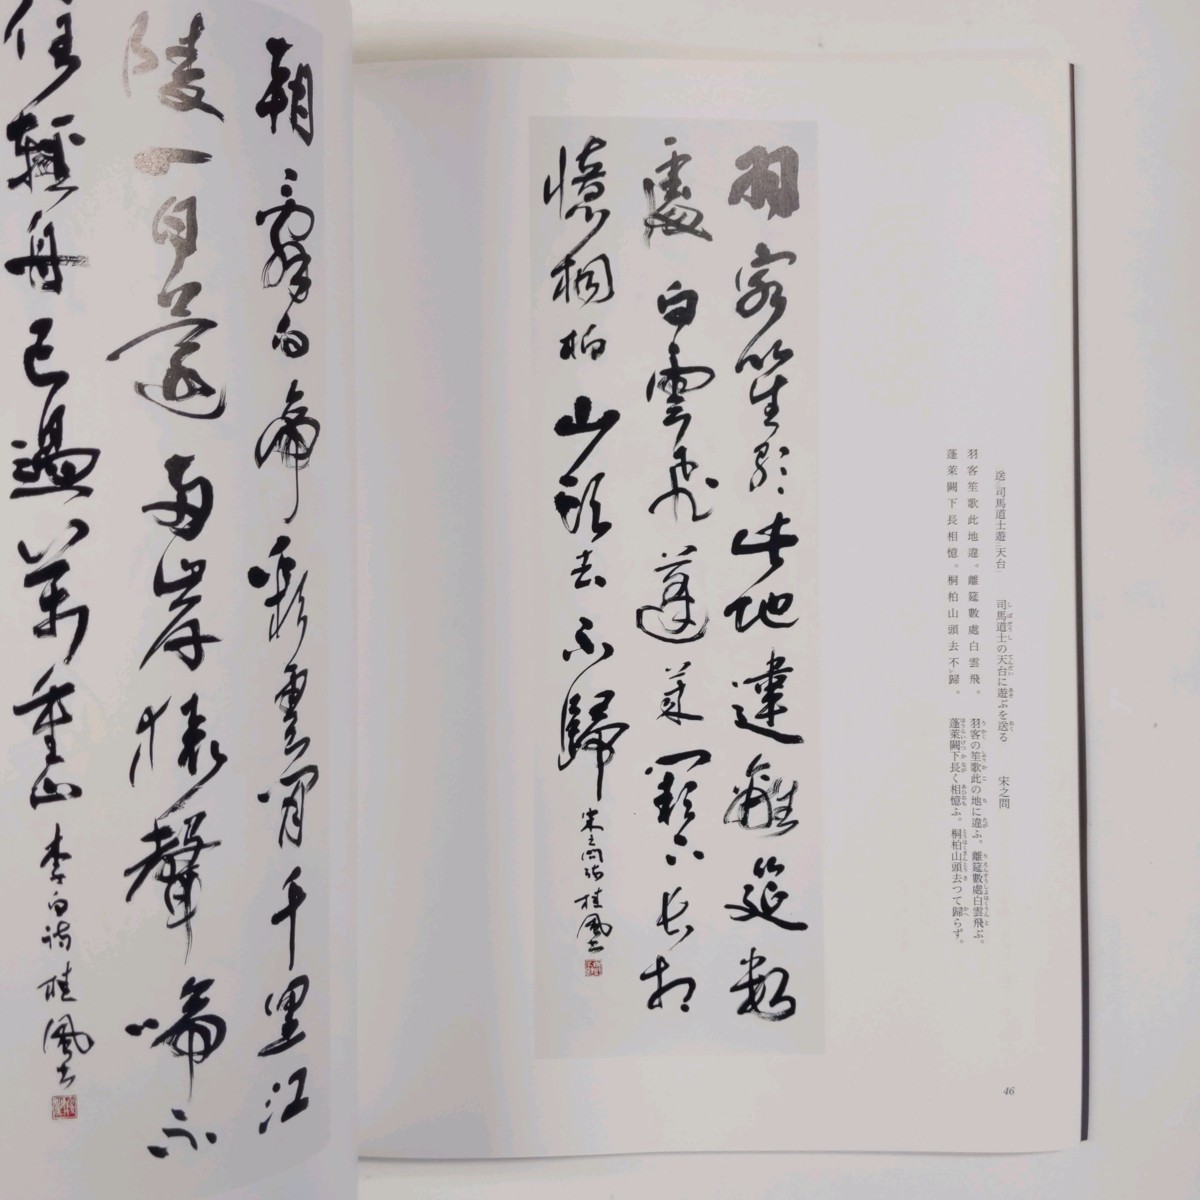 送司馬道士遊天台 司馬道士の天台に遊ぶを送る 宋之問
羽客笙歌此地違。離筵數處白雲飛。 羽客の笙歌此の地に違ふ。離筵數處白雲飛ぶ。
蓬萊闕下長相憶。桐柏山頭去不歸。 蓬萊闕下長く相憶ふ。桐柏山頭去つて歸らず。
羽客笙歌此地違離筵數
處白雲飛蓬萊闕下長相
憶桐柏山頭去不歸 宋之問詩 桂風書
46
朝辭白帝彩雲間千里江
陵一日還兩岸猿聲啼不
住輕舟已過萬重山 李白詩 桂風書